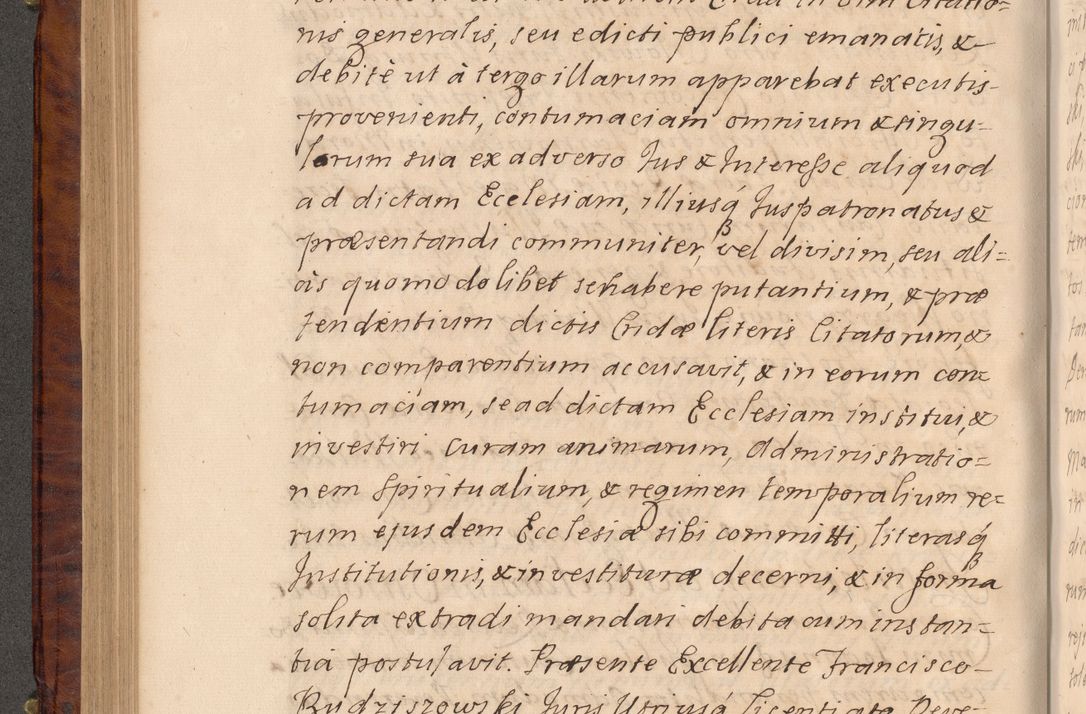 nis generalis, seu edicti publici emanatis, &
debitè ut à tergo illarum apparebat executis
provenienti, contumaciam omnium & singu=
lorum sua ex adverso Jus & Interesse aliquod
ad dictam Ecclesiam, illiusq́ Juspatronatus &
præsentandi communiter, vel divisim, seu ali=
às quomodolibet se habere putantium, & præ
tendentium dictis Cridæ literis Citatorum, &
non comparentium accusavit, & in eorum con=
tumaciam, se ad dictam Ecclesiam institui, &
investiri curam animarum, Administratio=
nem Spiritualium, & regimen temporalium re=
rum ejusdem Ecclesiæ sibi committi, literasq́
Institutionis, & investituræ decerni, & in forma
solita extradi mandari debita cum instan=
tia postulavit. Præsente Excellente Francisco
Rudziszowski Juris Utriusq́ Licentiato Deve=